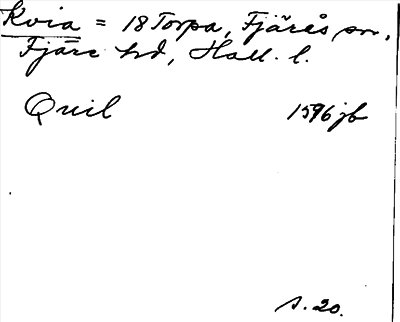 Kvia = 18 Torpa, Fjärås sn,
Fjäre hd, Hall. l.
Quil 1596 jb
s. 20.